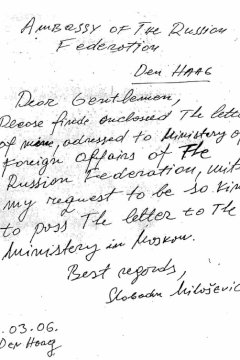 Ambassy of The Russion
Federotion
Den Haag
Dear Gentlemen,
Pleose finde enclossed The letter
of mine, adressed to Ministery of
Foreign Affairs of The
Russion Federation, with
my request to be so kin
to poss The letter to The
Ministery in Moskow.
Best regords,
Slobodan Milošević
.03.06.
Den Haag